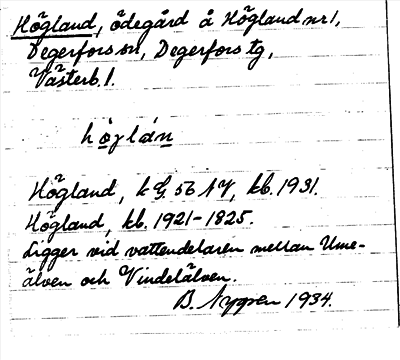 Högland, ödegård å Högland nr 1,
Degerfors sn, Degerfors tg,
Västerb. l.
höglán
Högland, k G. 56 NV, kb. 1931.
Högland, kb. 1921-1825.
Ligger vid vattendelaren mellan Ume-
älven och Vindelälven.
B. Nygren 1934.